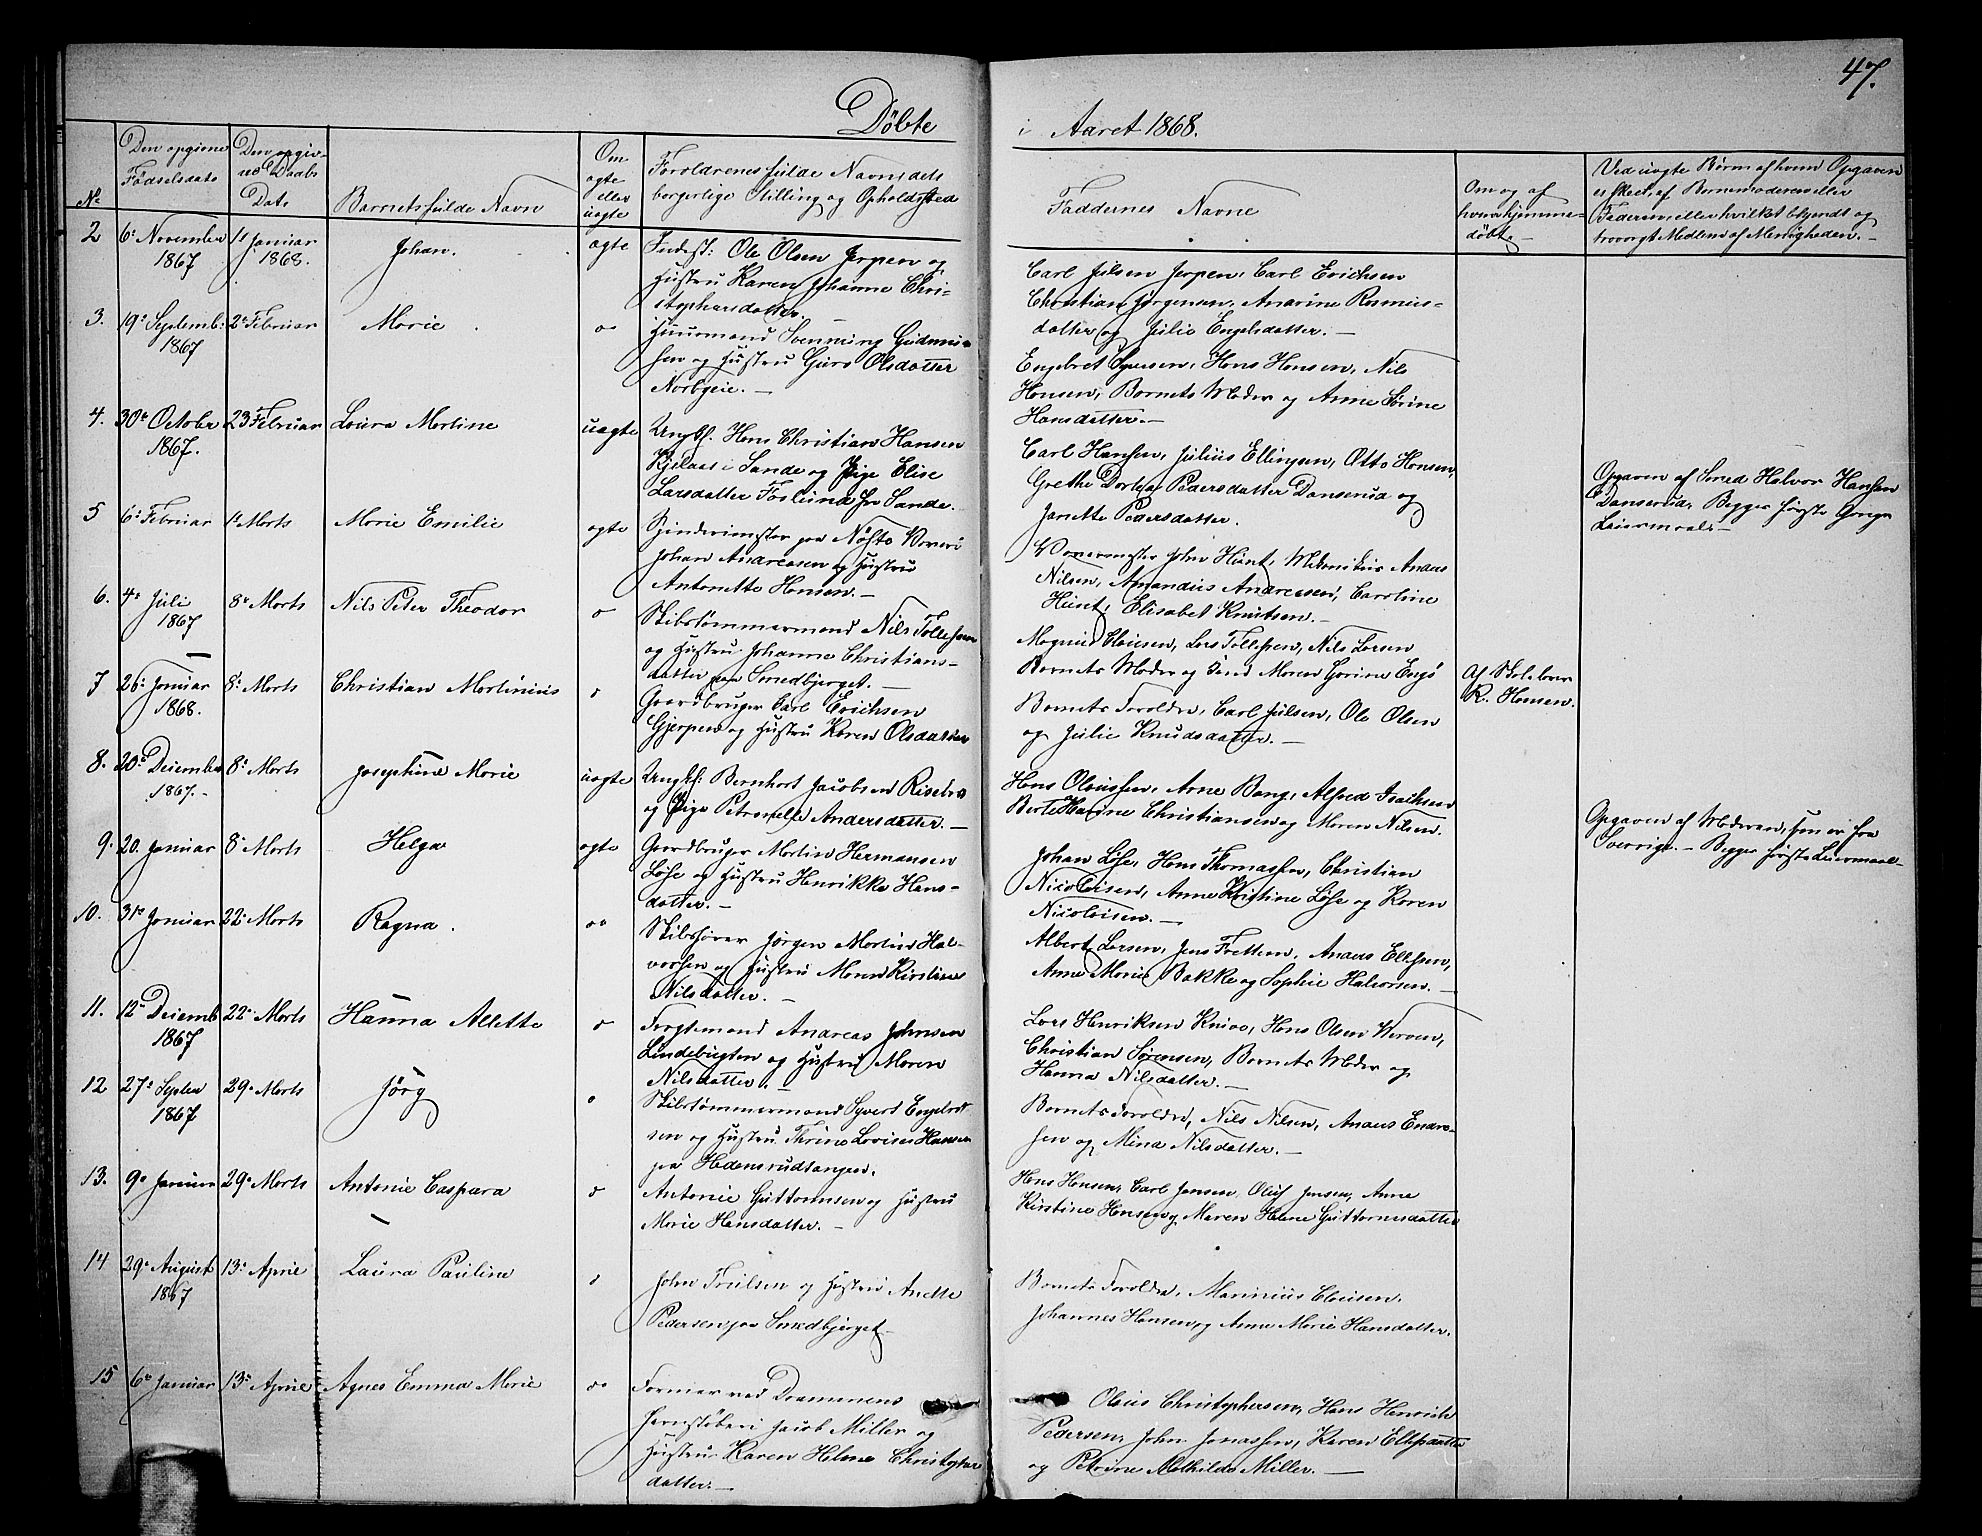 47.
Døbte i Aaret 1868.
No
Den opgivne Fødselsdato
Den opgivne Daabs Dato
Barnets fulde Navn
Om ægte eller uægte
Forældrenes fulde Navne dets borgerlige Stilling og Opholdssted
Faddernes Navne
Om og af hvem hjemmedøbt
Ved uægte Børn af hvem Opgaven er skeet, af Barnemoderen eller Faderen, eller hvilket bekjendt og troværgt Medlem af Menigheden.
2
6te November 1867
1st Januar 1868.
Johan.
ægte
Inderst: Ole Olsen Jerpen og
Hustru Karen Johanne Chri-
stophersdatter.
Carl Julsen Jerpen, Carl Erichsen
Christian Jørgensen, Anarine Rasmus-
datter og Julie Engelsdatter. —
3.
19de Septemb. 1867
2de Februar
Marie
Huusmand Svenning Gudmun-
sen og Hustru Guro Olsdatter
Norbyeie. —
Engebret Syversen, Hans Hansen, Nils
Hansen, Barnets Moder og Anne Sørine
Hansdatter. —
4.
30te October 1867.
23de Februar
Laura Martine
uægte
Ungkl. Hans Christian Hansen
Kjelaas i Sande og Pige Elise
Larsdatter Foslund fra Sande.
Carl Hansen, Julius Ellingsen, Otto Hansen,
Grethe Dorthea Pedersdatter Danserud og
Janette Pedersdatter.
Opgaven af Smed Halvor Hansen
Danserud, Begges første Gangs
Leiermaal. —
5
6te Februar
1ste Marts
Marie Emilie
ægte
Spinderimester paa Nøste Væveri
Johan Andreasen og Hustru
Antonette Hansen. —
Vævemester John Hunt, Mekanikus Anders
Nilsen, Amandus Andreasen, Caroline
Hunt, Elisabet Knutsen. —
6.
4de Juli 1867
8de Marts
Nils Peter Theodor
Skibstømmermand Nils Tollefsen
og Hustru Johanne Christians-
datter paa Smedbjerget. —
Magnus Clausen, Lars Tollefsen, Nils Larsen
Barnets Moder og Maren Gorine Engø
7
26de Januar 1868.
8de Marts
Christian Martinius
Gaardbruger Carl Erichsen
Gjerpen og Hustru Karen Olsdatter
Barnets Forældre, Carl Julsen, Ole Olsen
og Julie Knudsdatter. —
Af Skolelærer
R. Hansen.
8.
20de December 1867. —
8de Marts
Josephine Marie
uægte
Ungkl: Bernhart Jacobsen
og Pige Petronelle Andersdatter. —
Hans Olaussen, Arne Bang, Alfred Isachsen
Berte Karine Christiansen og Maren Nilsen.
Opgaven af Moderen, hun er fra
Sverrige. — Begges første Leiermaal —
9.
20. Januar
8de Marts
Helga
ægte
Gaardbruger Martin Hermansen
Løse og Hustru Henrikke Hans-
datter. —
Johan Løse, Hans Thomassen, Christian
Nicolaisen, Anne Kristine Løse og Karen
Nicolaisen. —
10.
31te Januar
22de Marts
Ragna.
Skibsfører Jørgen Martin Hal-
vorsen og Hustru Maren Kirstine
Nilsdatter. —
Albert Larsen, Jens Fretten, Anders Ellefsen,
Anne Marie Bakke og Sophie Halvorsen. —
11.
12te Decemb 1867
22de Marts
Hanna Alette
Færgemand Andreas Johnsen
Lindebugten og Hustru Maren
Nilsdatter. —
Lars Henriksen Knive, Hans Olsen Værven,
Christian Sørensen, Barnets Moder og
Hanna Nilsdatter. —
12
27de Septem 1867
29de Marts
Jörg
Skibstømmermand Syvert Engebret-
sen og Hustru Thrine Lovise Hansen
paa Hedensrudtangen.
Barnets Forældre, Nils Nilsen, Anders Endre-
sen og Mina Nilsdatter. —
13.
9de Januar
29de Marts
Antonie Caspara
Antonie Guttormsen og Hustru
Marie Hansdatter. —
Hans Hansen, Carl Jensen, Oluf Jensen, Anne
Kirstine Hansen og Maren Helene Guttormsdatter
14
29de August 1867
13de April
Laura Pauline
John Trulsen og Hustru Anette
Pedersen paa Smedbjerget —
Barnets Forældre, Marinius Clausen,
Johannes Hansen, og Anne Marie Hansdatter.
15
6te Januar
13de April
Agnes Emma Marie
Formær ved Drammens
Jernstøberi Jacob Miller og
Hustru Karen Helene Christopher
datter. —
Olaus Christophersen, Hans Henrich
Pedersen, John Jonassen, Karen Ellefsdatter
og Petrine Mathilde Miller. —